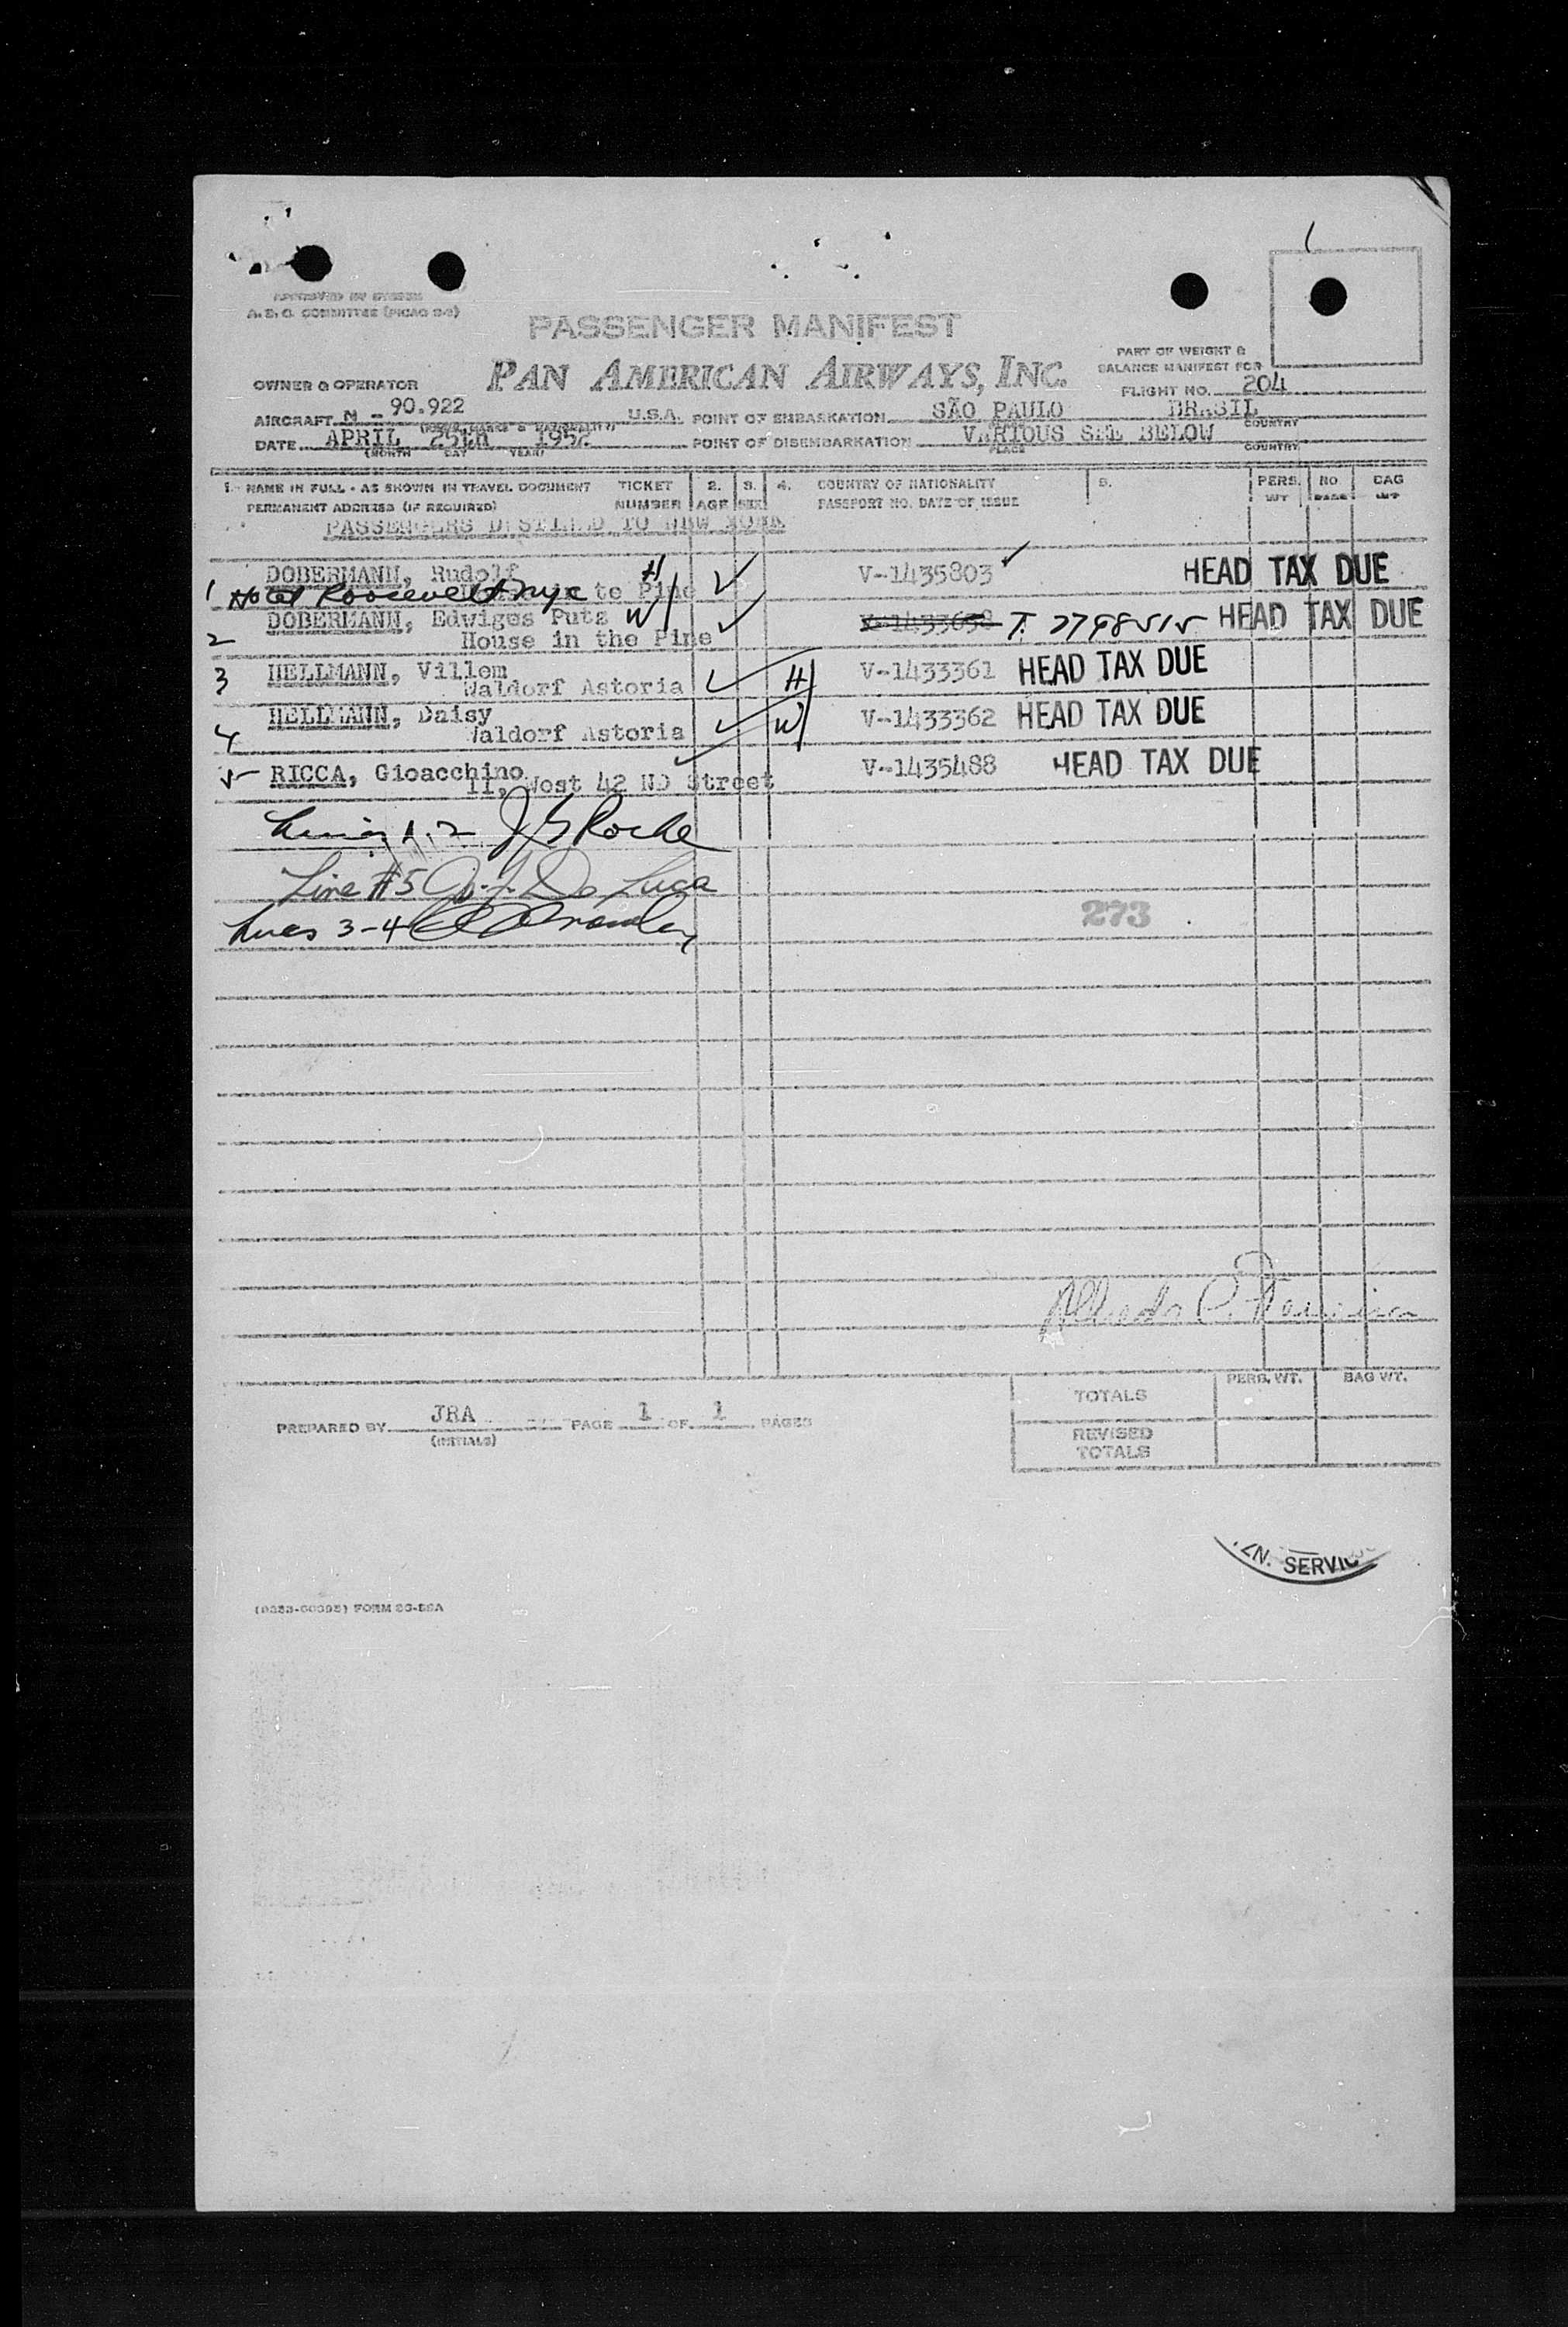 APPROVED BY
A. E. C. COMMITTEE (PICAO 2-3)
PASSENGER MANIFEST
PAN AMERICAN AIRWAYS, INC.
PART OF WEIGHT &
BALANCE MANIFEST FOR
OWNER & OPERATOR
FLIGHT NO. 204
AIRCRAFT N - 90.922 U.S.A. POINT OF EMBARKATION SÃO PAULO BRASIL
COUNTRY
DATE APRIL 25th 1952 POINT OF DISEMBARKATION VARIOUS SEE BELOW
(MONTH DAY YEAR) PLACE COUNTRY
1. NAME IN FULL - AS SHOWN IN TRAVEL DOCUMENT TICKET 2. 3. 4. COUNTRY OF NATIONALITY 5. PERS. NO. BAG
PERMANENT ADDRESS (IF REQUIRED) NUMBER AGE SEX PASSPORT NO. DATE OF ISSUE WT WT
PASSENGERS DESTINED TO NEW YORK
DOBERMANN, Rudolf H V-1435803 HEAD TAX DUE
1 Hotel Roosevelt nyc te Pine
DOBERMANN, Edwiges Putz W V-1433638 T. 2798515 HEAD TAX DUE
2 House in the Pine
3 HELLMANN, Villem H V-1433361 HEAD TAX DUE
Waldorf Astoria
HELLMANN, Daisy W V-1433362 HEAD TAX DUE
4 Waldorf Astoria
5 RICCA, Gioacchino V-1435488 HEAD TAX DUE
11, West 42 ND Street
J G Roche
Line #5 De Luca
Lines 3-4
273
PERS. WT. BAG WT.
TOTALS
PREPARED BY JRA PAGE 1 OF 1 PAGES
(INITIALS)
REVISED
TOTALS
ZN. SERVIC
FORM